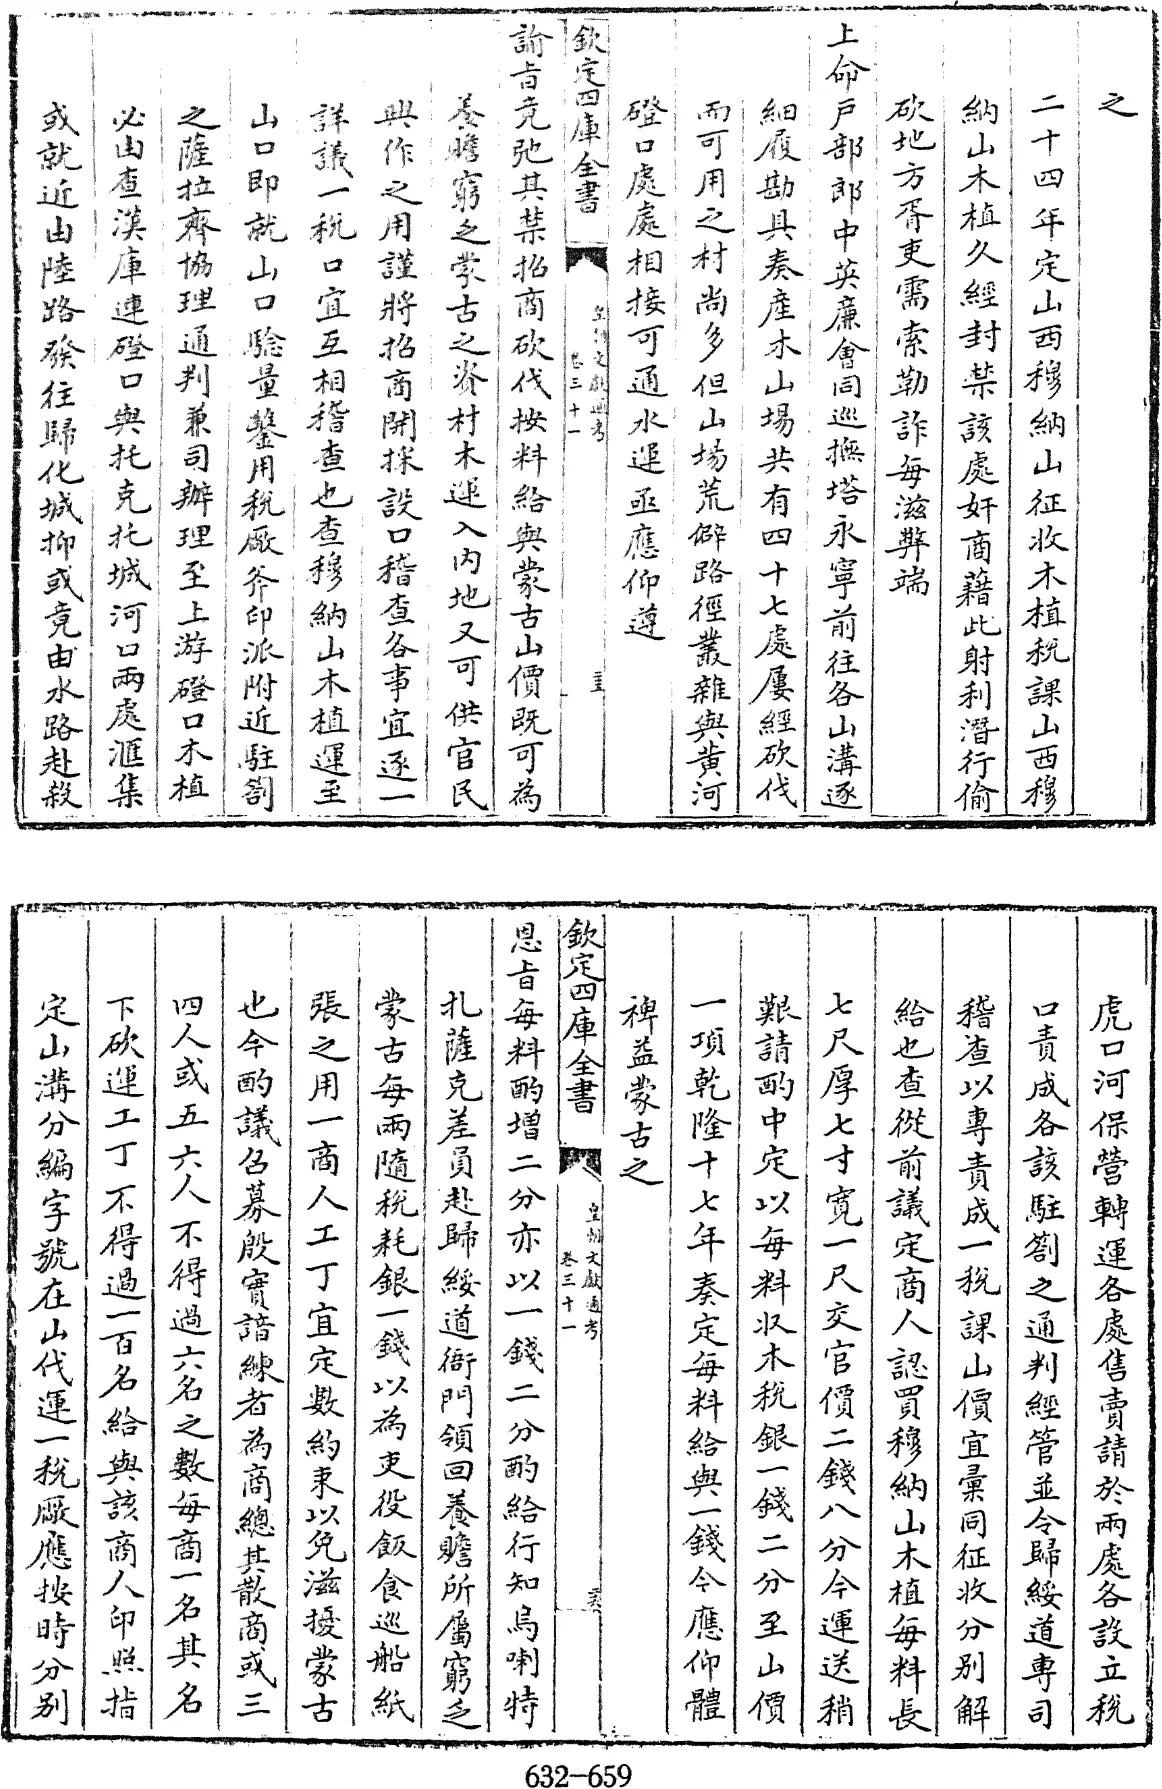 之
二十四年定山西穆納山征收木植稅課山西穆
納山木植久經封禁該處奸商藉此射利潛行偷
砍地方胥吏需索勒詐每滋弊端
上命戶部郎中英廉會同巡撫塔永寧前往各山溝逐
細履勘具奏產木山場共有四十七處屢經砍伐
而可用之材尚多但山場荒僻路徑叢雜與黃河
磴口處處相接可通水運亟應仰遵
欽定四庫全書
皇朝文獻通考
卷三十一
諭旨竟弛其禁招商砍伐按料給與蒙古山價既可為
養贍窮乏蒙古之資材木運入內地又可供官民
興作之用謹將招商開採設口稽查各事宜逐一
詳議一稅口宜互相稽查也查穆納山木植運至
山口即就山口驗量鑿用稅厰斧印派附近駐劄
之薩拉齊協理通判兼司辦理至上游磴口木植
必由查漢庫連磴口與托克托城河口兩處滙集
或就近由陸路發往歸化城抑或竟由水路赴殺
虎口河保營轉運各處售賣請於兩處各設立稅
口責成各該駐劄之通判經管並令歸綏道專司
稽查以專責成一稅課山價宜彚同征收分别解
給也查從前議定商人認買穆納山木植每料長
七尺厚七寸寛一尺交官價二錢八分今運送稍
艱請酌中定以每料収木稅銀一錢二分至山價
一項乾隆十七年奏定每料給與一錢今應仰體
裨益蒙古之
欽定四庫全書
皇朝文獻通考
卷三十一
恩旨每料酌增二分亦以一錢二分酌給行知烏喇特
扎薩克差員赴歸綏道衙門領回養贍所屬窮乏
蒙古每兩隨稅耗銀一錢以為吏役飯食巡船紙
張之用一商人工丁宜定數約束以免滋擾蒙古
也今酌議召募殷實諳練者為商總其散商或三
四人或五六人不得過六名之數每商一名其名
下砍運工丁不得過一百名給與該商人印照指
定山溝分編字號在山伐運一稅厰應按時分别
632-659